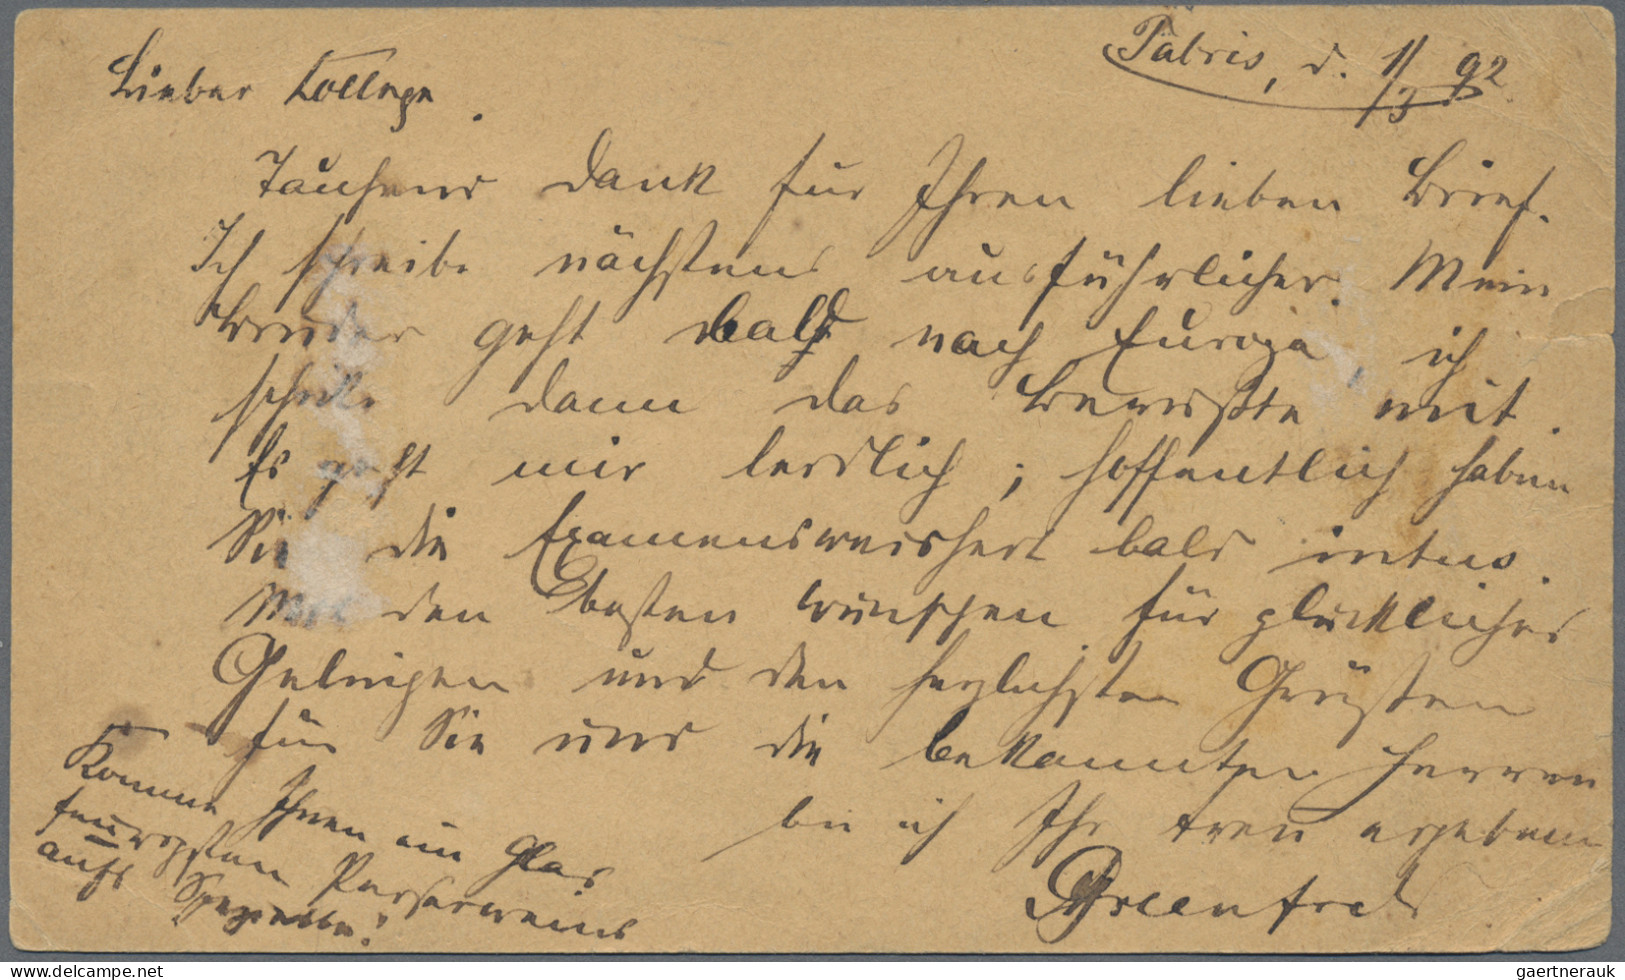 Täbris, d. 1/3 92
Lieber Kollege.
Tausend Dank für Ihren lieben Brief.
Ich schreibe nächstens ausführlicher. Mein
Bruder geht bald nach Europa, ich
schicke dann das Bewußte mit.
Es geht mir leidlich; hoffentlich haben
Sie die Examensweisheit bald intus.
Mit den besten Wünschen für glückliches
Gelingen und den herzlichsten Grüßen
für Sie und die bekannten Herren
bin ich Ihr treu ergebener
Komme Ihnen ein Glas
feurigsten Perserweins
aufs Spezielle!
Delcampe.net
gaertnerauk